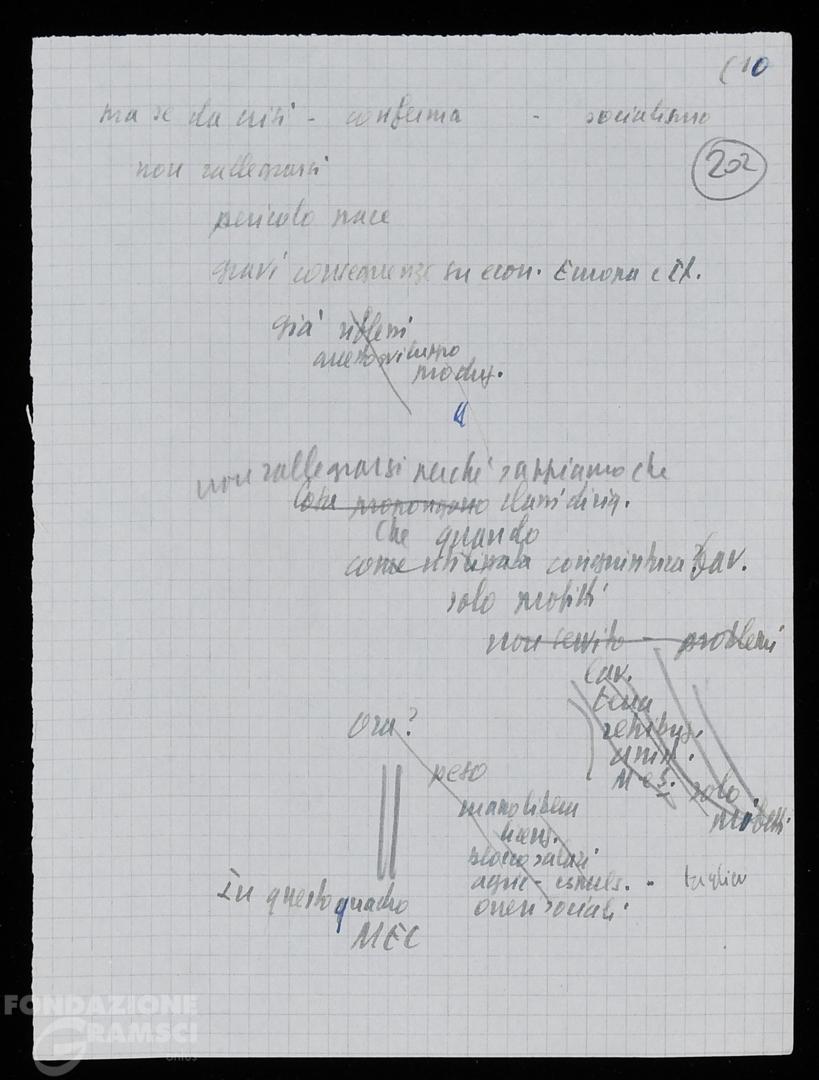 (10
ma se da crisi - conferma - socialismo
202
non rallegrarsi
pericolo pace
gravi conseguenze su econ. Europa e It.
già riflessi
arresto sviluppo
produz.
non rallegrarsi perché sappiamo che
cosa propongono classi dirig.
che quando
come utilizzata congiuntura fav.
solo profitti
non servito - problemi
lav.
terra
retribuz.
Mezz. solo
profitti
ora?
peso
mano libera
licenz.
blocco salari
agric - - taglio
oneri sociali
In questo quadro
MEC
FONDAZIONE
GRAMSCI
ONLUS